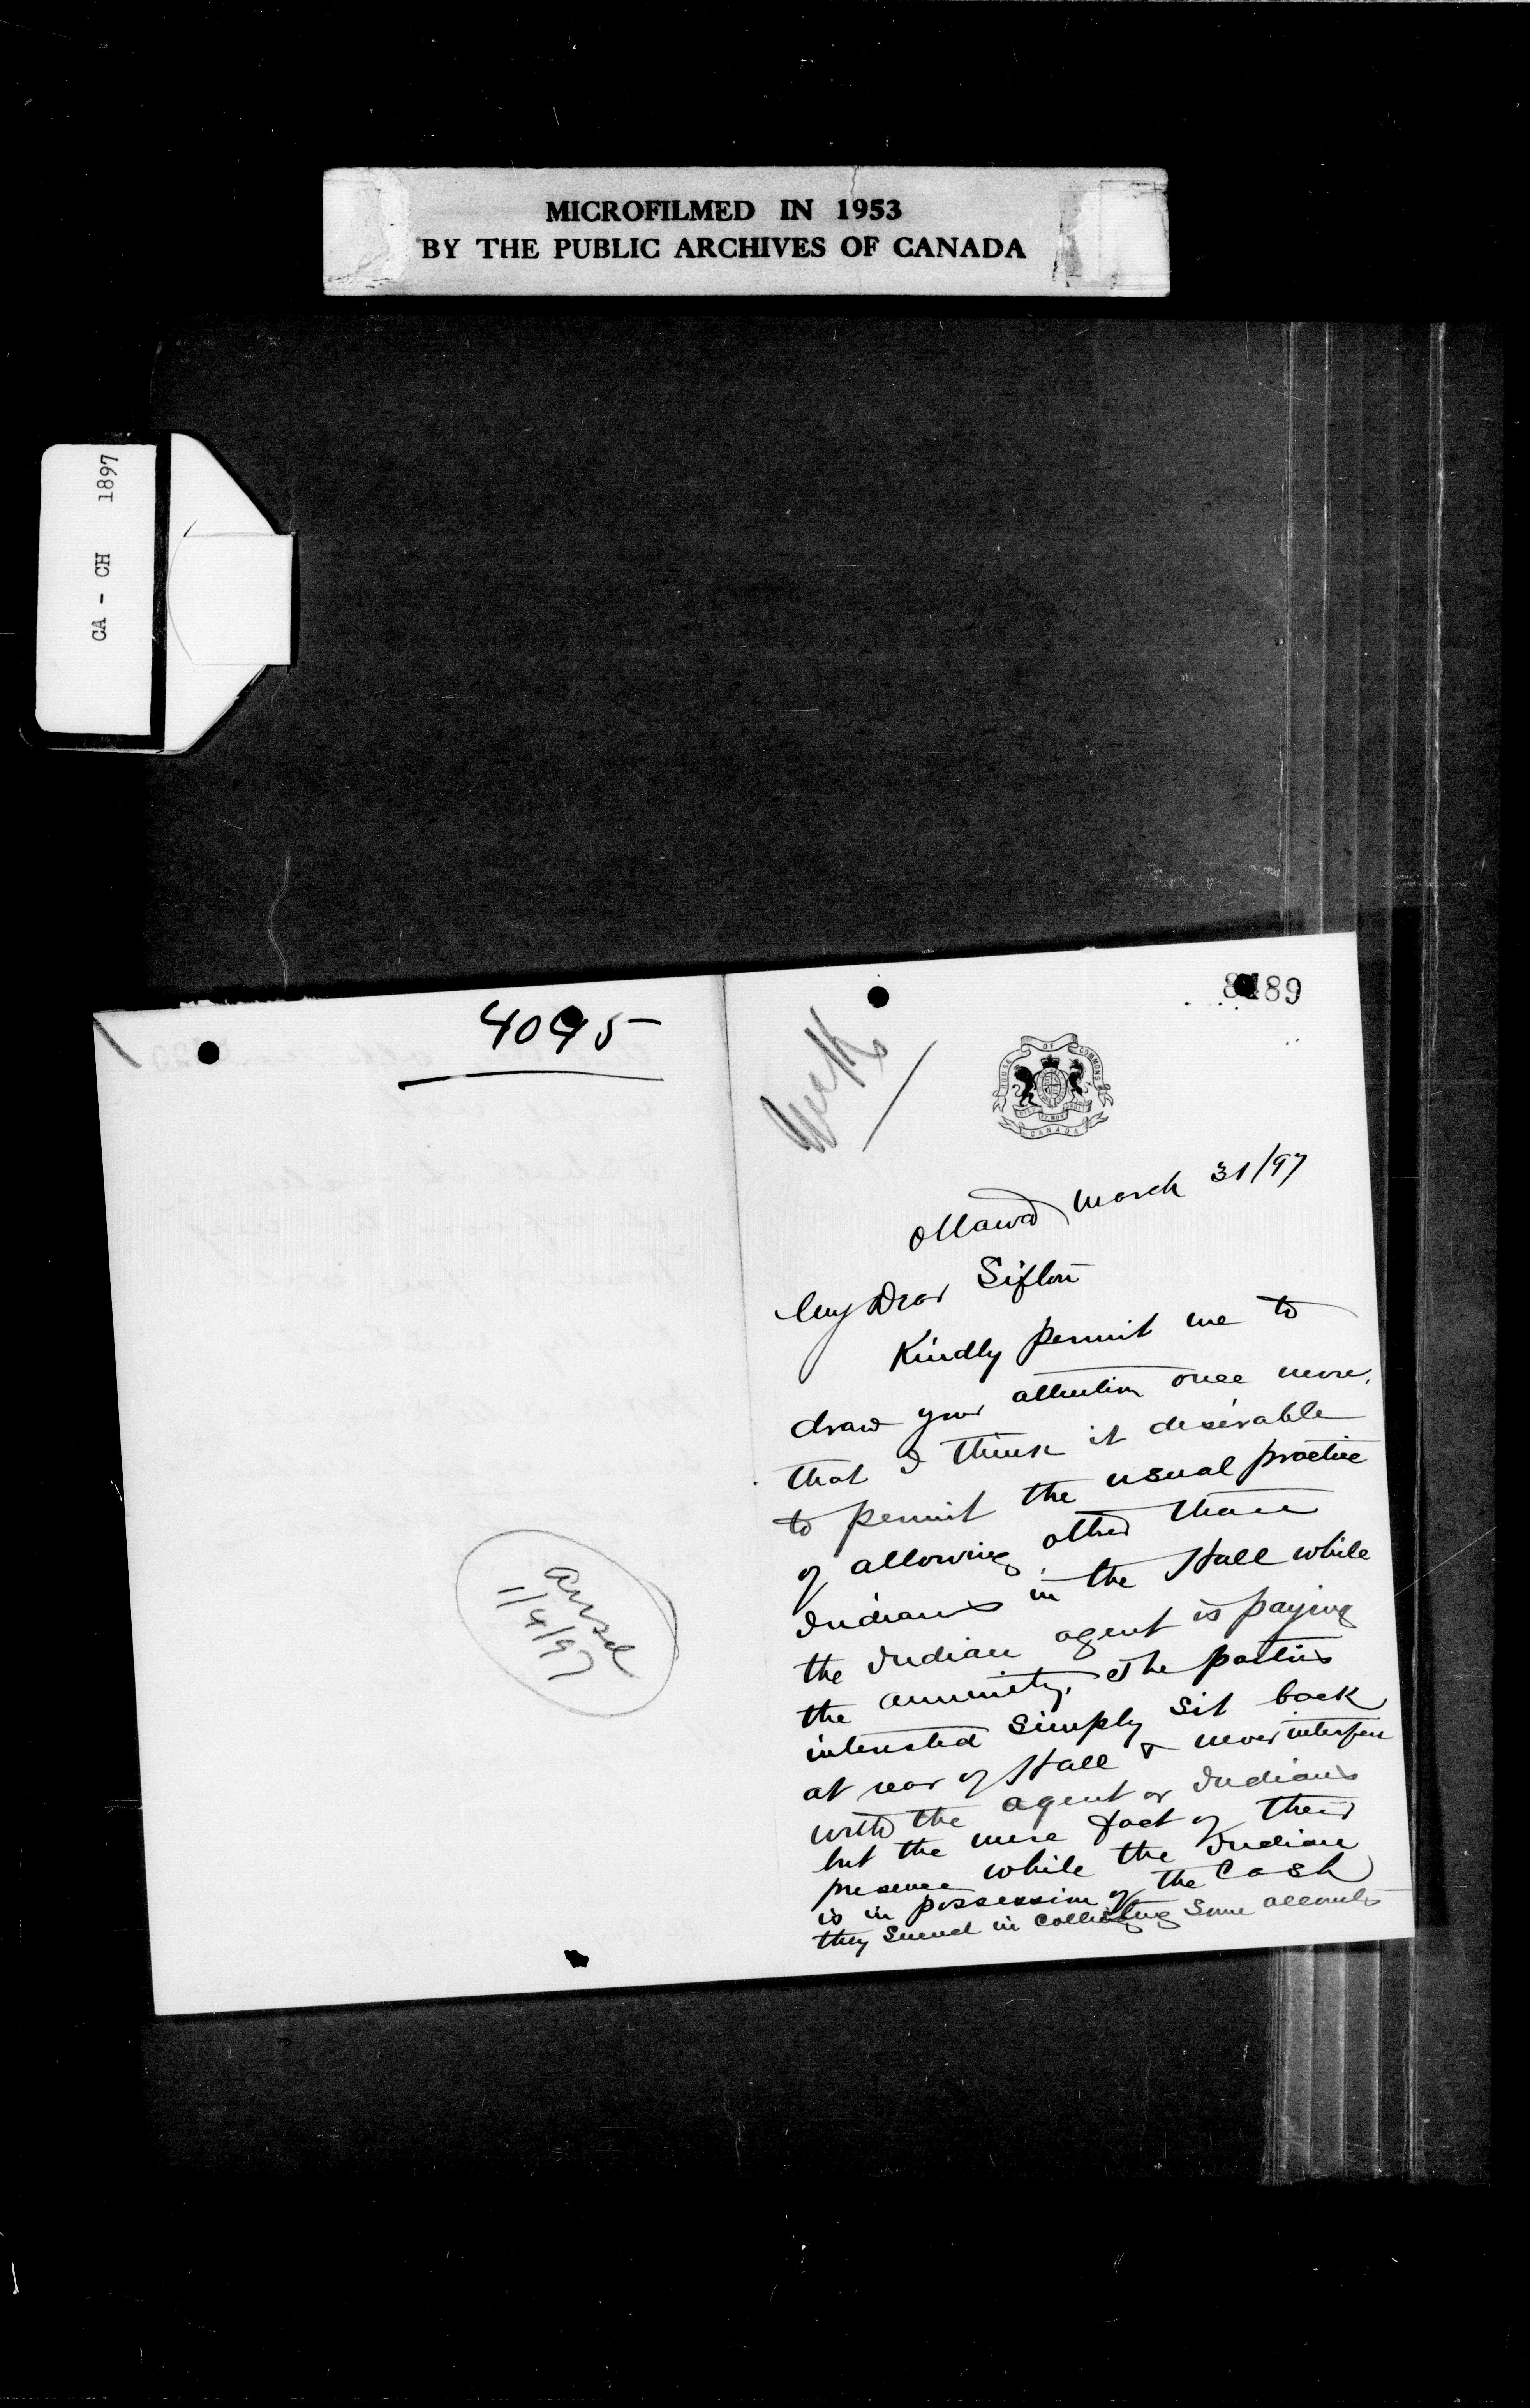 MICROFILMED IN 1953
BY THE PUBLIC ARCHIVES OF CANADA
CA - CH 1897
4095
ansd
1/4/97
89
HOUSE OF COMMONS
CANADA
Ottawa March 31/97
My Dear Sifton
Kindly permit me to
draw your attention once more,
that I think it desirable
to permit the usual practice
of allowing other than
Indians in the Hall while
the Indian agent is paying
the annuity. The parties
interested simply sit back
at rear of Hall & never interfere
with the agent or Indians
but the mere fact of their
presence while the Indian
is in possession of the Cash
they succeed in collecting some accounts